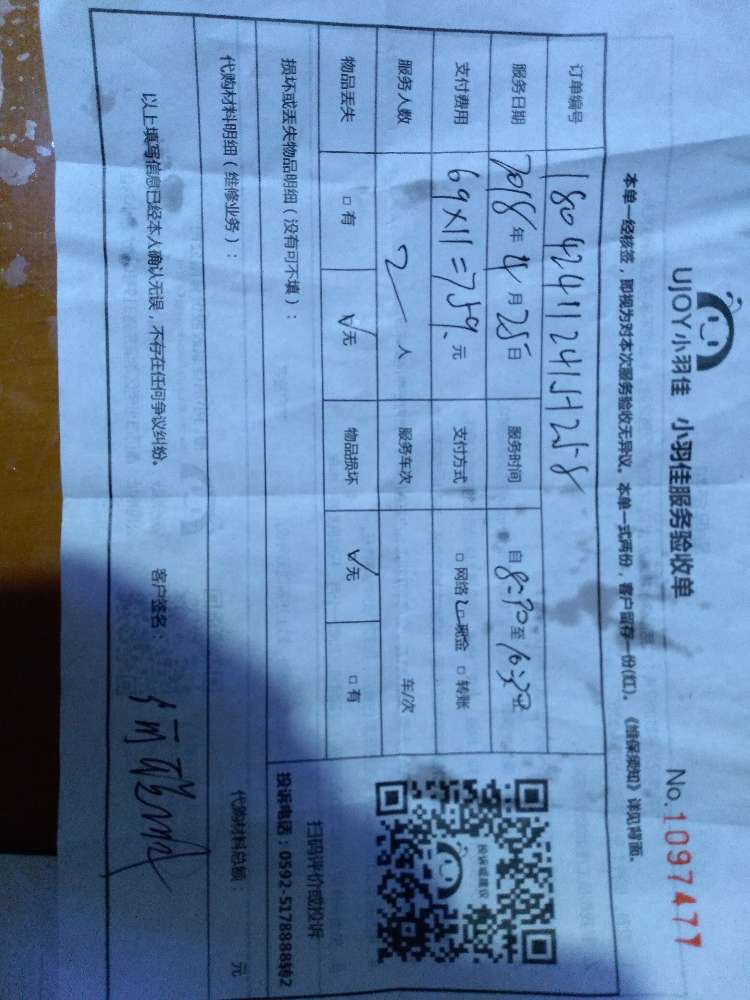 UJOY小羽佳 小羽佳服务验收单 No.1097477
本单一经核签，即视为对本次服务验收无异议。本单一式两份，客户留存一份(红)。《维保须知》详见背面。
订单编号
服务日期 2018年4月25日 服务时间 自8:30至16:30止
支付费用 69×11=759.元 支付方式 □网络 ☑现金 □转账
服务人数 2人 服务车次 车/次
物品丢失 □有 ☑无 物品损坏 ☑无 □有
投诉或建议
扫码评价或投诉
损坏或丢失物品明细（没有可不填）：
投诉电话：0592-5178888转2
代购材料明细（维修业务）： 代购材料总额： 元
以上填写信息已经本人确认无误，不存在任何争议纠纷。 客户签名：